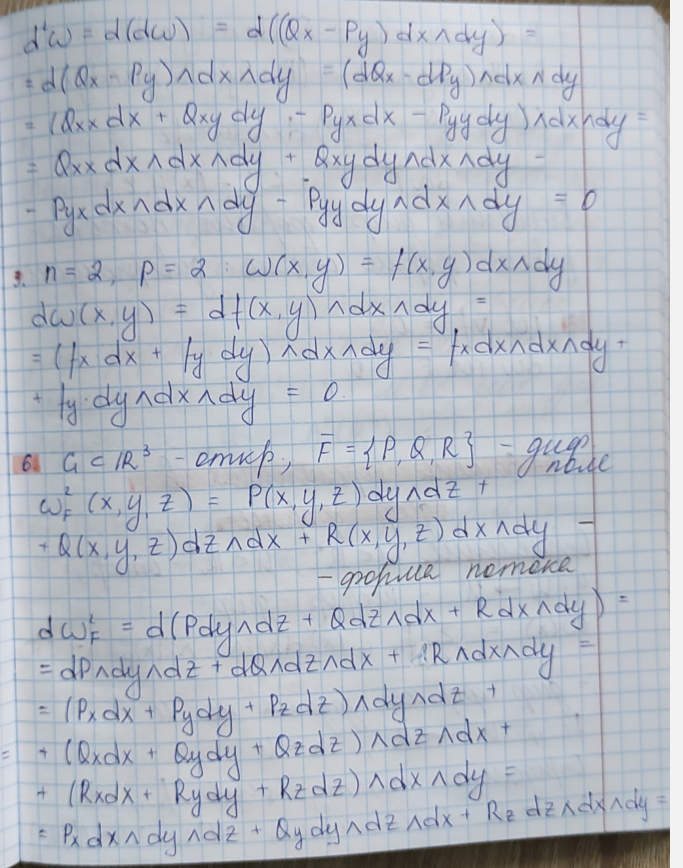 d²ω = d(dω) = d((Qx - Py) dx∧dy) =
= d(Qx - Py)∧dx∧dy = (dQx - dPy)∧dx∧dy
= (Qxx dx + Qxy dy - Pyx dx - Pyy dy)∧dx∧dy =
= Qxx dx∧dx∧dy + Qxy dy∧dx∧dy -
- Pyx dx∧dx∧dy - Pyy dy∧dx∧dy = 0
3. n = 2, p = 2 : ω(x,y) = f(x,y)dx∧dy
dω(x,y) = df(x,y)∧dx∧dy =
= (fx dx + fy dy)∧dx∧dy = fx dx∧dx∧dy +
+ fy dy∧dx∧dy = 0.
6. G ⊂ ℝ³ - откр, F̄ = {P, Q, R} - диф
поле
ω²F (x, y, z) = P(x, y, z) dy∧dz +
+ Q(x, y, z) dz∧dx + R(x, y, z) dx∧dy -
- форма потока
dω²F = d(Pdy∧dz + Qdz∧dx + Rdx∧dy) =
= dP∧dy∧dz + dQ∧dz∧dx + dR∧dx∧dy =
= (Pxdx + Pydy + Pzdz)∧dy∧dz +
= + (Qxdx + Qydy + Qzdz)∧dz∧dx +
+ (Rxdx + Rydy + Rzdz)∧dx∧dy =
= Px dx∧dy∧dz + Qy dy∧dz∧dx + Rz dz∧dx∧dy =